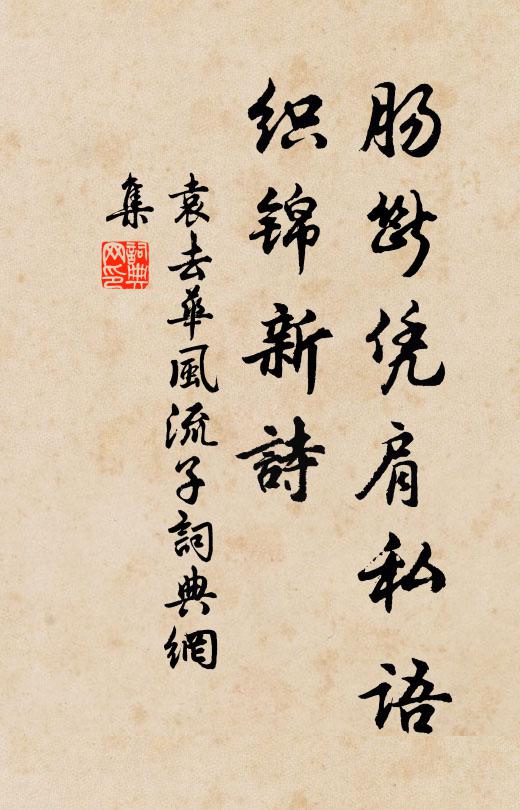 肠断凭肩私语
织锦新詩
袁去華風流子詞典網
集
詞典网印